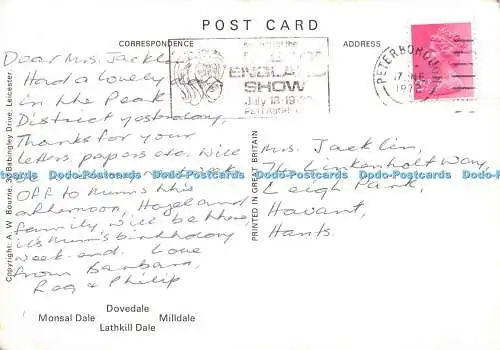 POST CARD
CORRESPONDENCE
ADDRESS
ENGLAND
SHOW
July 18-19-20
PETERBOROUGH
1972
Dear Mrs. Jacklin,
Had a lovely day
in the Peak
District yesterday,
Thanks for your
letters, papers etc. Will
Off to Mum's this
afternoon, Hazel and
family will be there,
its Mum's birthday
week-end. Love
from Barbara,
Reg & Philip
Mrs. Jacklin,
Linkenholt Way,
Leigh Park,
Havant,
Hants.
PRINTED IN GREAT BRITAIN
Copyright: A. W. Bourne, Babingley Drive, Leicester
Dodo-Postcards Dodo-Postcards Dodo-Postcards Dodo-Postcards Dodo-Postcards
Dovedale
Monsal Dale Milldale
Lathkill Dale